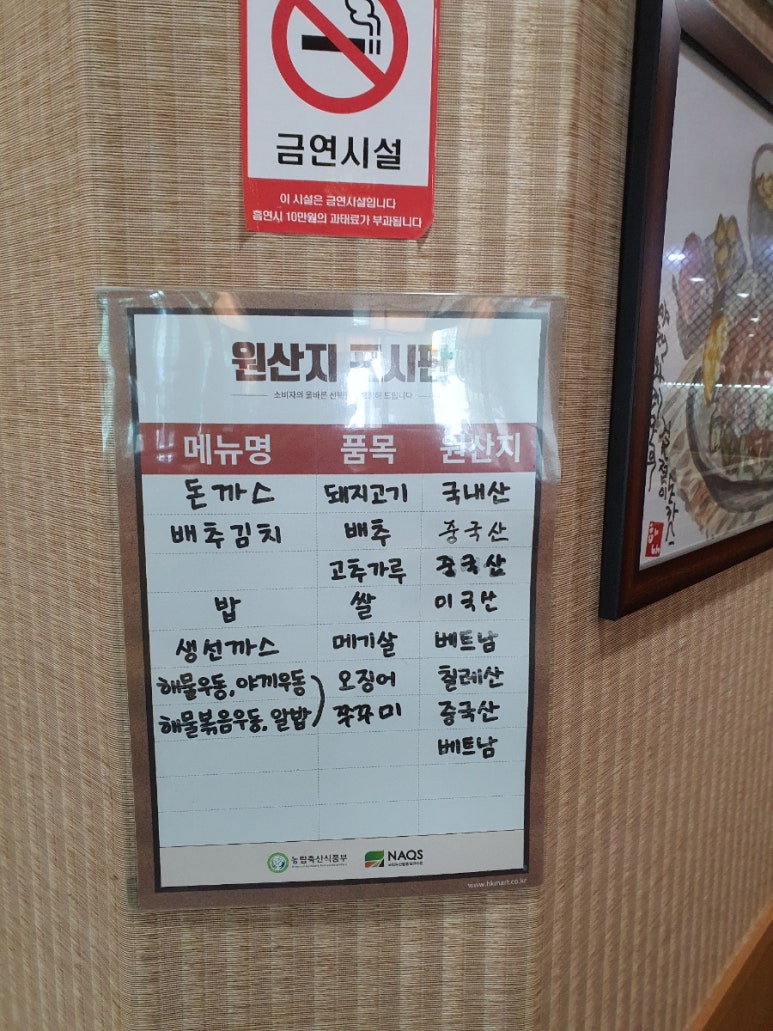 금연시설
이 시설은 금연시설입니다
흡연시 10만원의 과태료가 부과됩니다
원산지 표시판
소비자의 올바른 선택을 드립니다
메뉴명 품목 원산지
돈까스 돼지고기 국내산
배추김치 배추 중국산
고추가루 중국산
밥 쌀 미국산
생선까스 메기살 베트남
해물우동, 야끼우동 오징어 칠레산
해물볶음우동, 알밥 쭈꾸미 중국산
베트남
농림축산식품부
NAQS
www.hkmart.co.kr